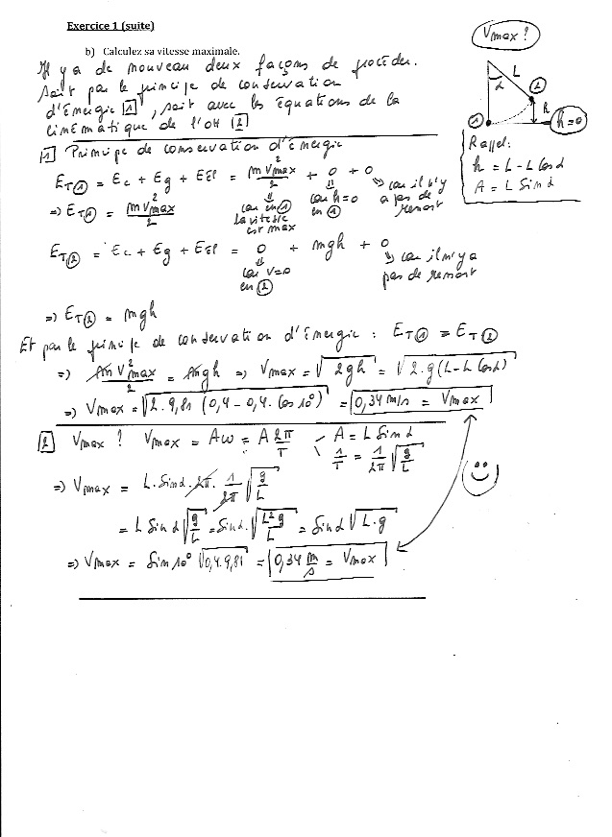 Exercice 1 (suite)
b) Calculez sa vitesse maximale.
Vmax ?
Il y a de nouveau deux façons de procéder.
Soit par le principe de conservation
d'Energie [1], soit avec les équations de la
cinématique de l'OH [2]
L
α
②
①
h
h=0
Rappel:
h = L - L cos α
A = L sin α
[1] Principe de conservation d'énergie
ET① = Ec + Eg + EEl = mV²max/2 + 0 + 0
car en ① la vitesse est max
car h=0 en ①
car il n'y a pas de ressort
=> ET① = mV²max/2
ET② = Ec + Eg + EEl = 0 + mgh + 0
car v=0 en ②
car il n'y a pas de ressort
=> ET② = mgh
Et par le principe de conservation d'énergie : ET① = ET②
=> mV²max/2 = mgh => Vmax = √2gh = √2.g(L-L cosα)
=> Vmax = √2.9,81 (0,4 - 0,4. cos 10°) = 0,34 m/s = Vmax
[2] Vmax ? Vmax = Aω = A 2π/T
A = L sin α
1/T = 1/2π √g/L
=> Vmax = L. sinα. 2π. 1/2π √g/L
= L sin α √g/L = sinα. √L²g/L = sinα √L.g
=> Vmax = sin 10° √0,4.9,81 = 0,34 m/s = Vmax